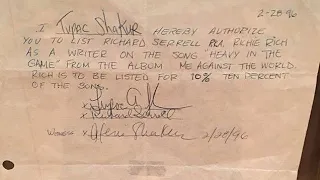 2-28-96
I Tupac Shakur HEREBY AUTHORIZE
YOU TO LIST RICHARD SERRELL RICHIE RICH
AS A WRITER ON THE SONG "HEAVY IN THE
GAME" FROM THE ALBUM ME AGAINST THE WORLD.
RICH IS TO BE LISTED FOR 10% TEN PERCENT
OF THE SONG.
x
x Richard Serrell
WITNESS x Afeni Shakur 2/28/96